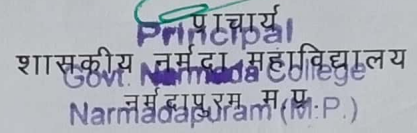 प्राचार्य
Principal
शासकीय नर्मदा महाविद्यालय
Govt. Narmada College
नर्मदापुरम् म.प्र.
Narmadapuram (M.P.)